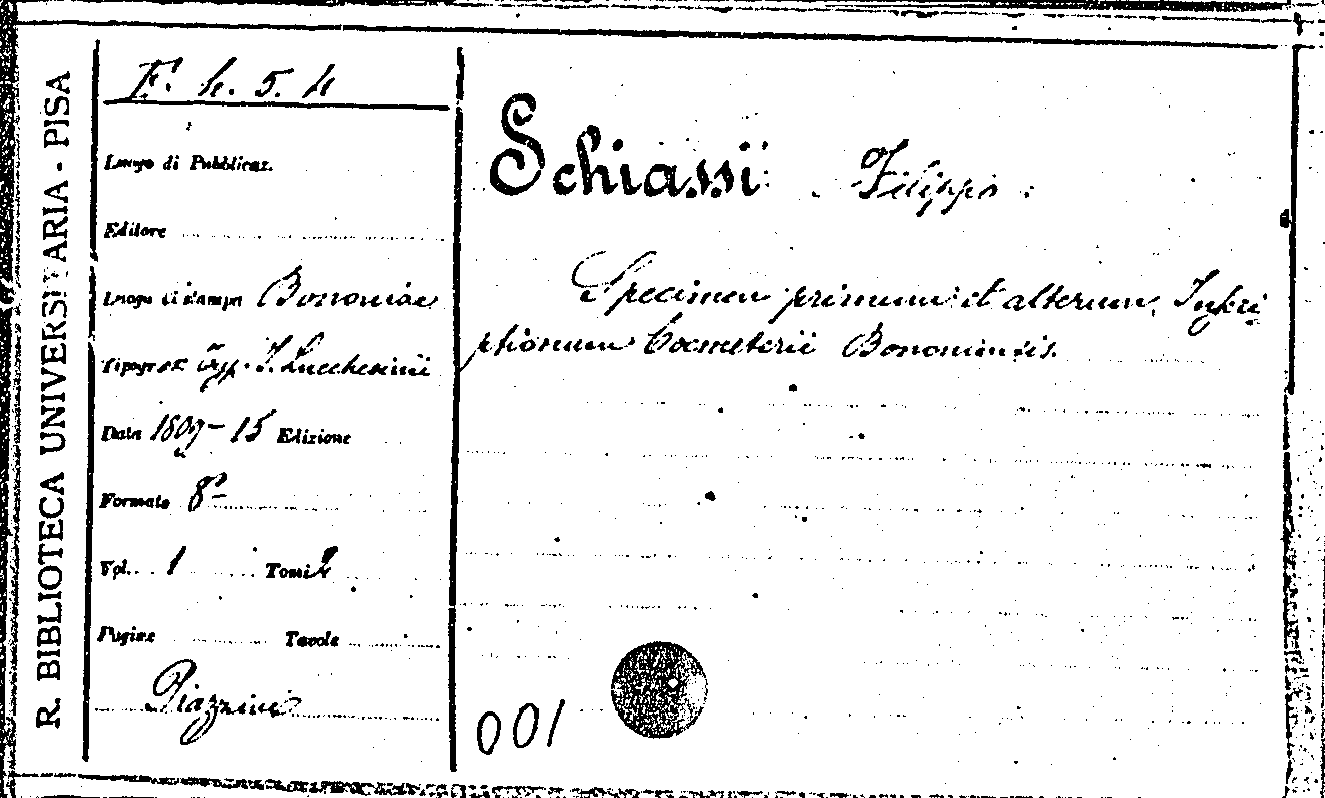 R. BIBLIOTECA UNIVERSITARIA - PISA
F. h. 5. 4
Luogo di Pubblicaz.
Editore
Luogo di stampa Bononiae
Tipograf. typ. J. Lucchesinii
Data 1809-15 Edizione
Formato 8º
Vol. 1 Tomi 2
Pagine Tavole
Piazzini
Schiassi Filippo
Specimen primum et alterum Inscri
ptionum Coemeterii Bononiensis.
001